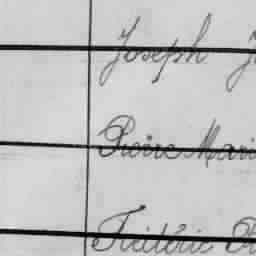 Joseph J
Pierre Mari
Frédéric R